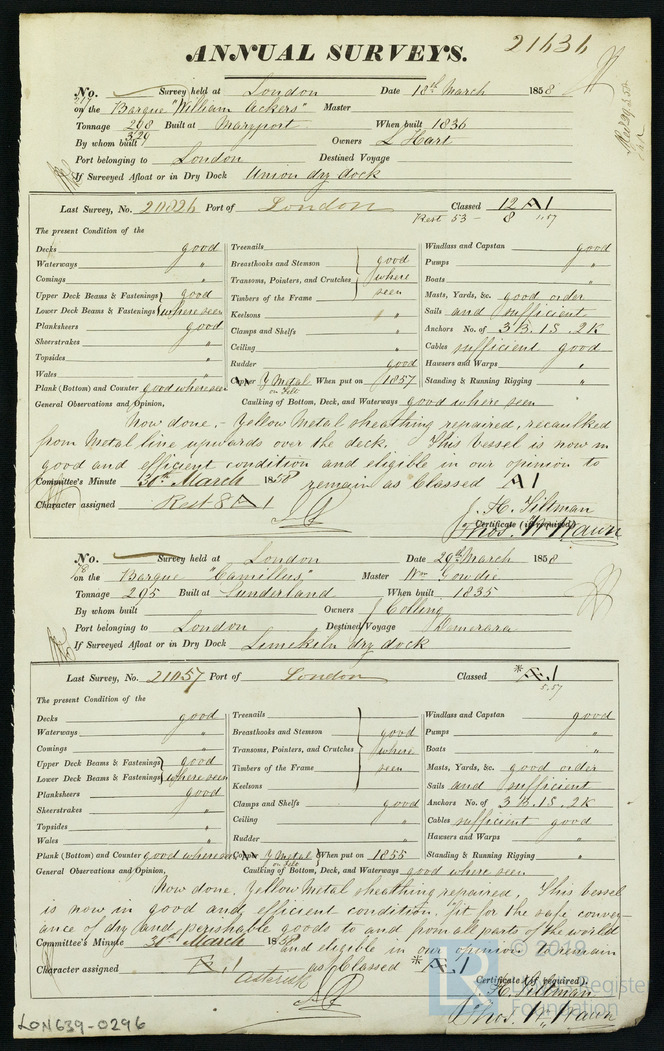 ANNUAL SURVEYS. 21636
No. Survey held at London Date 18th March 1858
on the Barque "William Ackers" Master
Tonnage 268 Built at Maryport When built 1836
329
By whom built Owners L Hart
Port belonging to London Destined Voyage
If Surveyed Afloat or in Dry Dock Union dry dock
Last Survey, No. 21026 Port of London Classed 12 A1
Rest 53 - 8 1.57
The present Condition of the
Decks good Treenails Windlass and Capstan good
Waterways " Breasthooks and Stemson good Pumps "
Comings " Transoms, Pointers, and Crutches where Boats "
Upper Deck Beams & Fastenings good Timbers of the Frame seen Masts, Yards, &c. good order
Lower Deck Beams & Fastenings where seen Keelsons " Sails and sufficient
Planksheers good Clamps and Shelfs " Anchors No. of 3B.1S.2K
Sheerstrakes " Ceiling " Cables sufficient good
Topsides " Rudder good Hawsers and Warps "
Wales " Copper Y Metal on Felt When put on 1857 Standing & Running Rigging "
Plank (Bottom) and Counter good where seen Caulking of Bottom, Deck, and Waterways good where seen
General Observations and Opinion,
Now done. - Yellow Metal sheathing repaired, recaulked
from Metal line upwards over the deck. This vessel is now in
good and efficient condition and eligible in our opinion to
Committee's Minute 30th March 1858 remain as Classed A1
Character assigned Rest 8 A 1 J. H. Tillman
Certificate (if required)
No. Survey held at London Date 29th March 1858
on the Barque "Camillus," Master Wm Gowdie
Tonnage 295 Built at Sunderland When built 1835
By whom built Owners J Colling
Port belonging to London Destined Voyage Demerara
If Surveyed Afloat or in Dry Dock Limekiln dry dock
Last Survey, No. 21057 Port of London Classed *Æ.1
5.57
The present Condition of the
Decks good Treenails Windlass and Capstan good
Waterways " Breasthooks and Stemson good Pumps "
Comings " Transoms, Pointers, and Crutches where Boats "
Upper Deck Beams & Fastenings good Timbers of the Frame seen Masts, Yards, &c. good order
Lower Deck Beams & Fastenings where seen Keelsons Sails and sufficient
Planksheers good Clamps and Shelfs good Anchors No. of 3B.1S.2K
Sheerstrakes " Ceiling " Cables sufficient good
Topsides " Rudder " Hawsers and Warps "
Wales " Copper Y Metal on Felt When put on 1855 Standing & Running Rigging "
Plank (Bottom) and Counter good where seen Caulking of Bottom, Deck, and Waterways good where seen
General Observations and Opinion,
Now done. Yellow Metal sheathing repaired. This vessel
is now in good and efficient condition, fit for the safe convey-
ance of dry and perishable goods to and from all parts of the world
Committee's Minute 30th March 1858 and eligible in our opinion to remain
Character assigned Æ.1 as Classed *Æ.1 Certificate (if required)
Asterisk J. H. Tillman
LR © 2019
Lloyd's Register
Foundation
LON639-0296